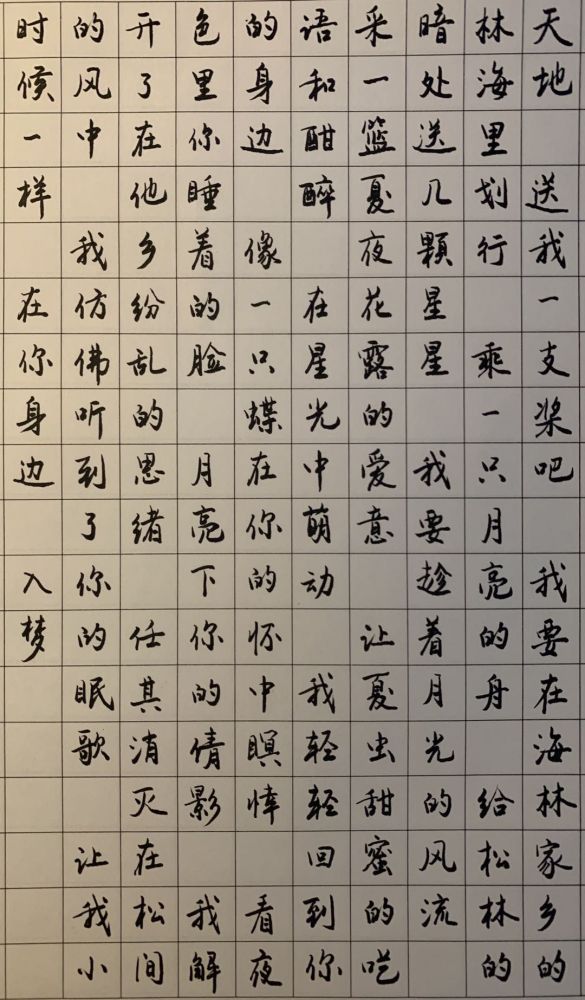 天地 送我一支桨吧 我要在海林家乡的
林海里划行 乘一只月亮的舟 给松林的
暗处送几顆星星 我要趁着月光的风流
采一篮夏夜花露的爱意 让夏虫甜蜜的呓
语和酣醉 在星光中萌动 我轻轻回到你
的身边 像一只蝶在你的怀中瞑悻 看夜
色里你睡着的脸 月亮下你的倩影 我解
开了在他乡纷乱的思绪 任其消灭在松间
的风中 我仿佛听到了你的眠歌 让我小
时候一样 在你身边 入梦